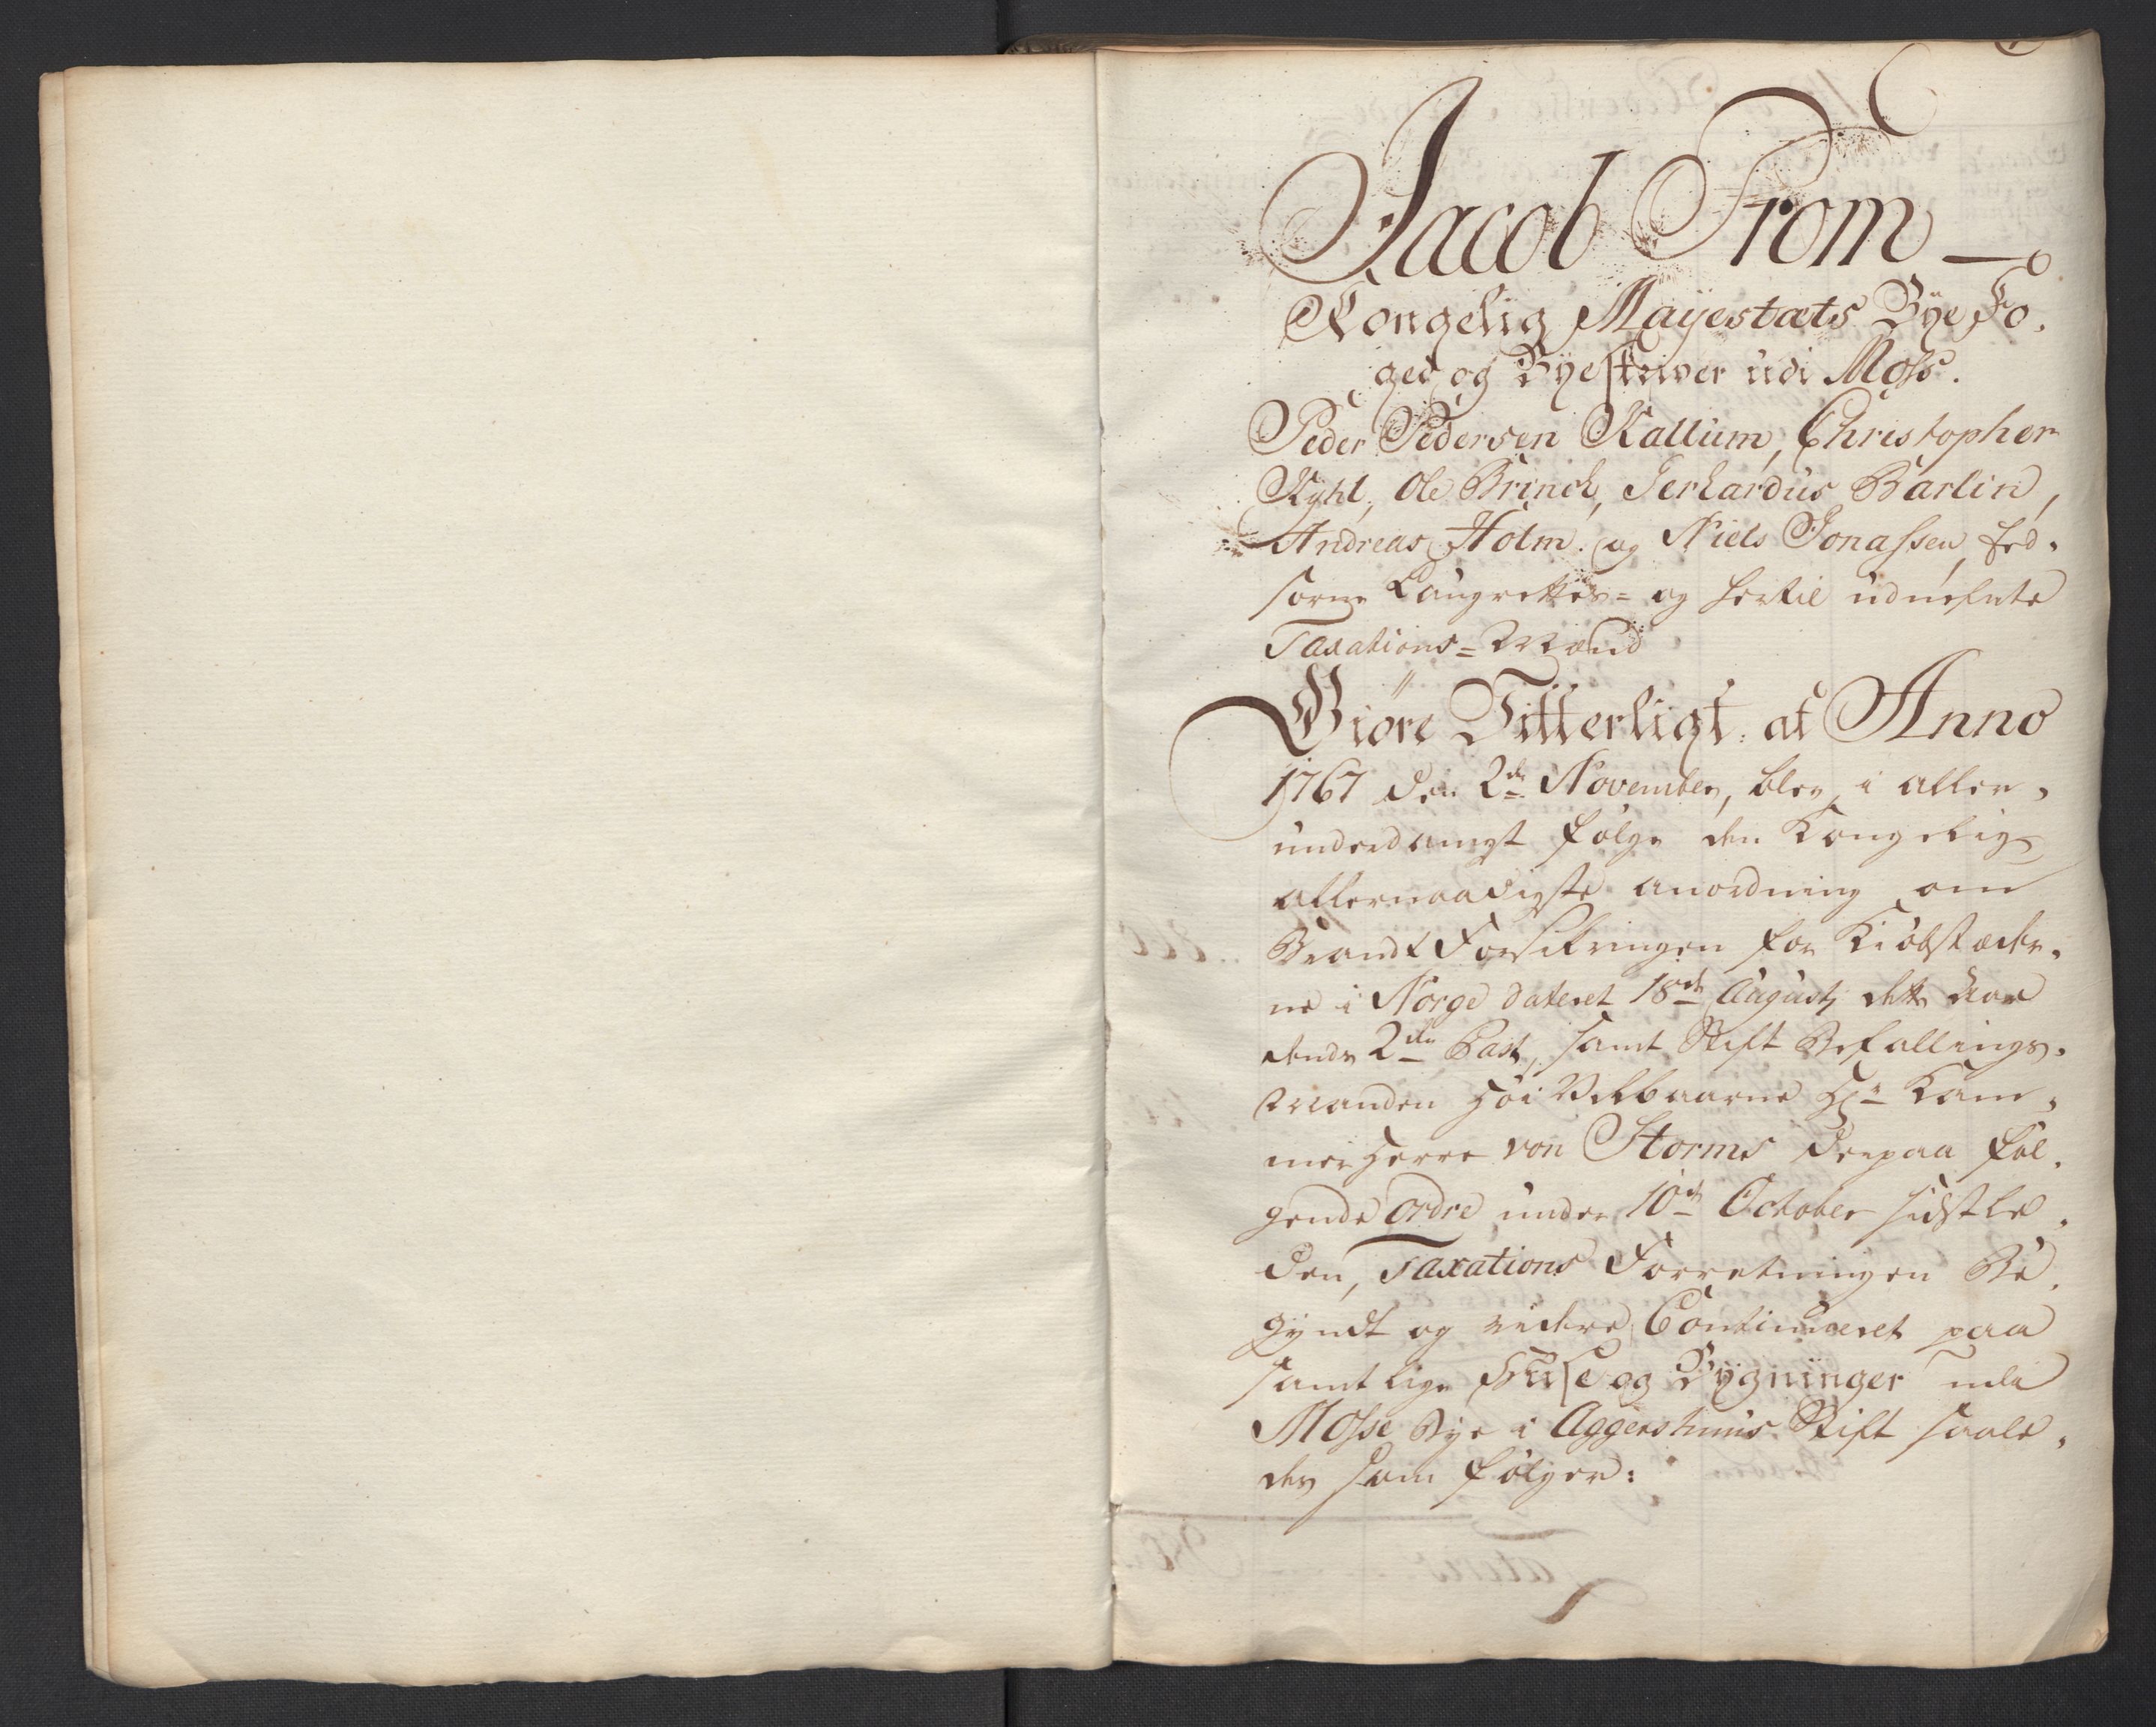 Jacob Prom
Kongelig Mayestæts Bye Fo.
ged og Byeskriver udi Moss.
Peder Pedersen Kallum, Christopher
Kyhl, Ole Brinch, Gerhardus Barlin,
Andreas Holm og Niels Jonassen, Ed.
sorne Laugrettes= og hertil udnefnte
Taxations=Mænd
Giöre Vitterligt: at Anno
1767 den 2de November, blev i aller,
underdanigst fölge den Kongelig
allernaadigste anordning om
Brandt Forsikringen for Kiöbstæder,
ne i Norge dateret 18de Augustj dette Aar
dends 2den Post, samt Stift Befallings,
Manden Höi Velbaarne Hr Kam,
mer Herre von Storms derpaa föl,
gende Ordre under 10de October sidstle,
den, Taxations Forretningen Be,
gyndt og videre Continueret paa
samtlige Huse og Bygninger udi
Mosse Bye i Aggershuus Stift saale,
des som fölger: